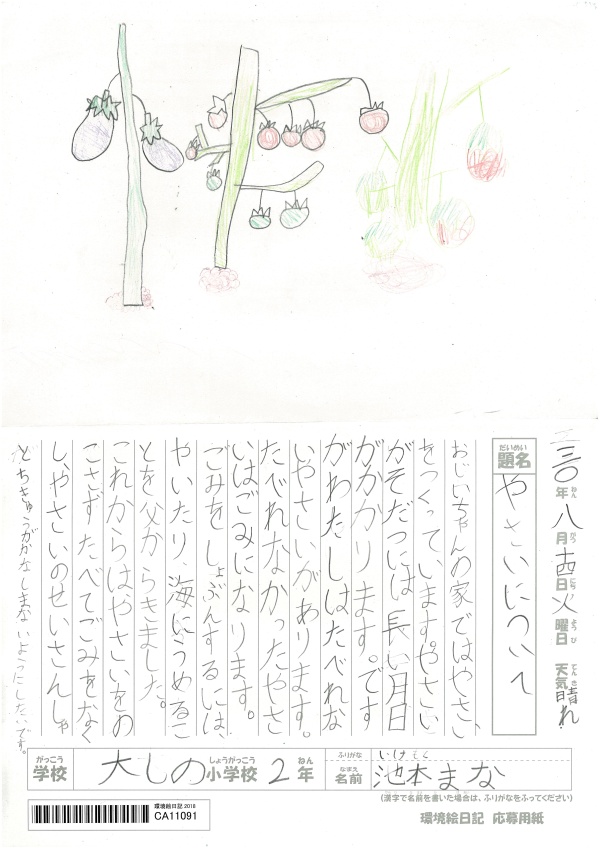 三〇年八月十四日火曜日 天気晴れ
ねん がつ にち よう び てん き
だいめい
題名 やさいについて
おじいちゃんの家ではやさい
をつくっています。やさい
がそだつには長い月日
がかかります。です
がわたしはたべれな
いやさいがあります。
たべれなかったやさ
いはごみになります。
ごみをしょぶんするには、
やいたり、海にうめるこ
とを父からききました。
これからはやさいをの
こさずたべてごみをなく
し、やさいのせいさんしゃ
とちきゅうがかなしまないようにしたいです。
がっこう しょうがっこう ねん
学校 大しの小学校 2年
ふりがな いけもと
なまえ
名前 池本まな
(漢字で名前を書いた場合は、ふりがなをふってください)
環境絵日記 2018
CA11091
環境絵日記 応募用紙